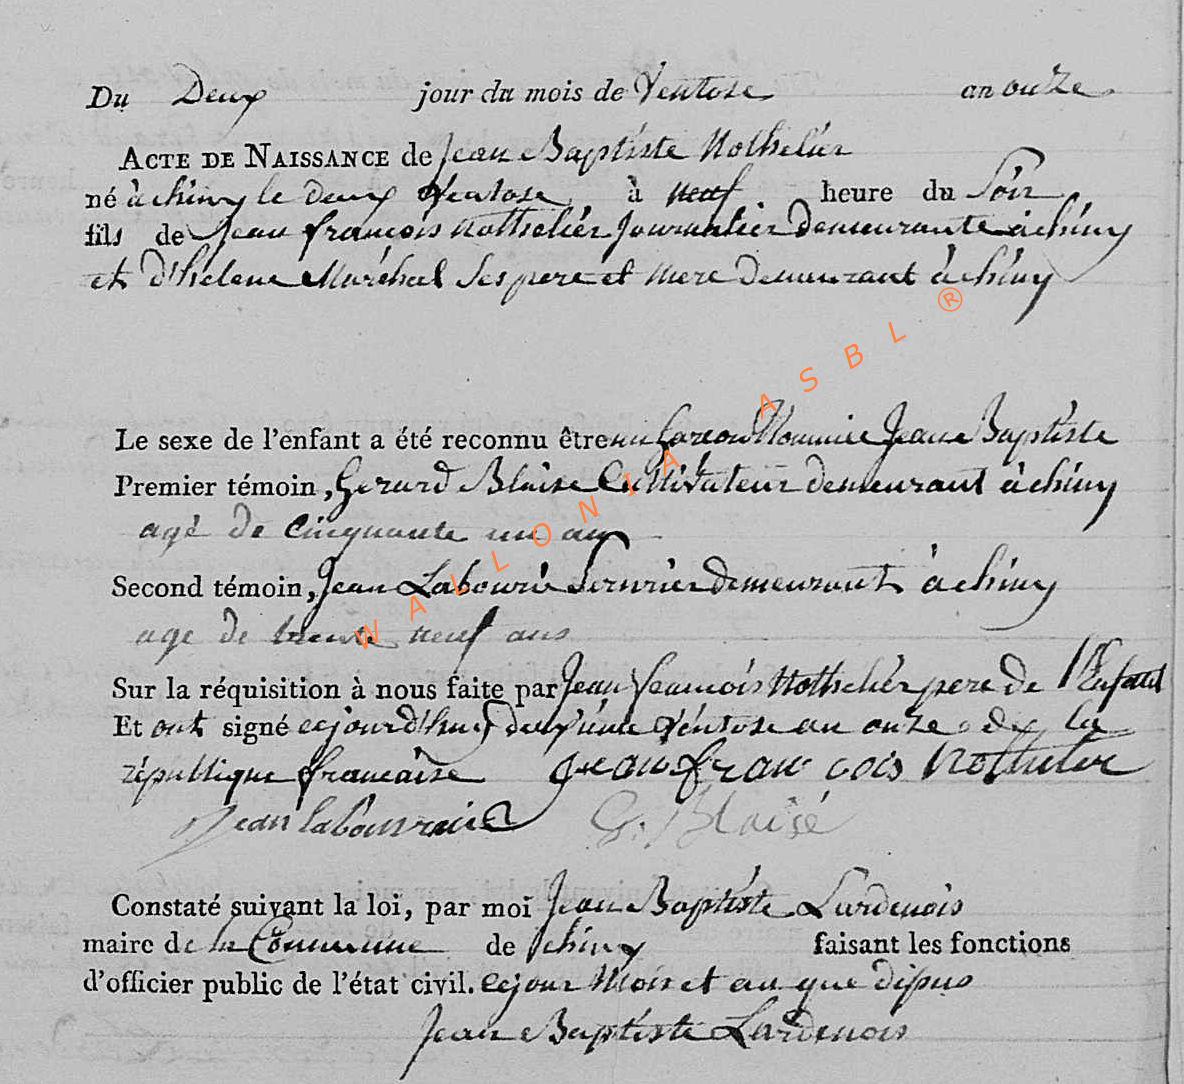 Du Deux jour du mois de Ventose an onze
ACTE DE NAISSANCE de Jean Baptiste Nothelier
né à chiny le deux Ventose à neuf heure du Soir
fils de Jean françois Nothelier Journalier demeurante à chiny
et d'helene Maréchal Ses pere et mere demeurant à chiny
Le sexe de l'enfant a été reconnu être un Garcon Nommée Jean Baptiste
Premier témoin, Gerard Blaise Cultivateur demeurant à chiny
agé de cinquante un an
Second témoin, Jean Labouré Serurier demeurant à chiny
age de trente neuf ans
Sur la réquisition à nous faite par Jean francois Nothelier pere de l'Enfant
Et ont signé cejourd'huy deuxième Ventose an onze de la
république francaise Jean francois Nothelier
Jean labouraie G. Blaise
Constaté suivant la loi, par moi Jean Baptiste Lardenois
maire de la Commune de chiny faisant les fonctions
d'officier public de l'état civil. Cejour Mois et an que dessus
Jean Baptiste Lardenois
WALLONIA ASBL ®